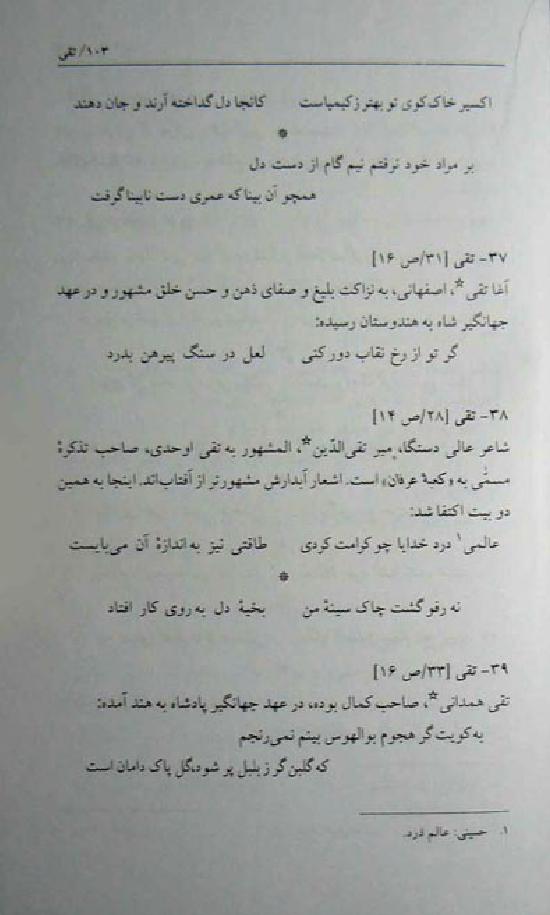 ۱۰۳/ تقی
اکسیر خاک کوی تو بهتر ز کیمیاست کانجا دل گداخته آرند و جان دهند
*
بر مراد خود نرفتم نیم گام از دست دل
همچو آن بینا که عمری دست نابینا گرفت
۳۷- تقی [۳۱/ص ۱۶]
آغا تقی*، اصفهانی، به نزاکت بلیغ و صفای ذهن و حسن خلق مشهور و در عهد
جهانگیر شاه به هندوستان رسیده:
گر تو از رخ نقاب دور کنی لعل در سنگ پیرهن بدرد
۳۸- تقی [۲۸/ص ۱۴]
شاعر عالی دستگاه، میر تقی‌الدّین*، المشهور به تقی اوحدی، صاحب تذکرهٔ
مسمّٰی به «کعبهٔ عرفان» است. اشعار آبدارش مشهورتر از آفتاب‌اند. اینجا به همین
دو بیت اکتفا شد:
عالمی۱ درد خدایا چو کرامت کردی طاقتی نیز به اندازهٔ آن می‌بایست
*
نه رفو گشت چاک سینهٔ من بخیهٔ دل به روی کار افتاد
۳۹- تقی [۳۳/ص ۱۶]
تقی همدانی*، صاحب کمال بوده، در عهد جهانگیر پادشاه به هند آمده:
به کویت گر هجوم بوالهوس بینم نمی‌رنجم
که گلبن گر ز بلبل پر شود، گل پاک دامان است
۱. حسینی: عالم درد.